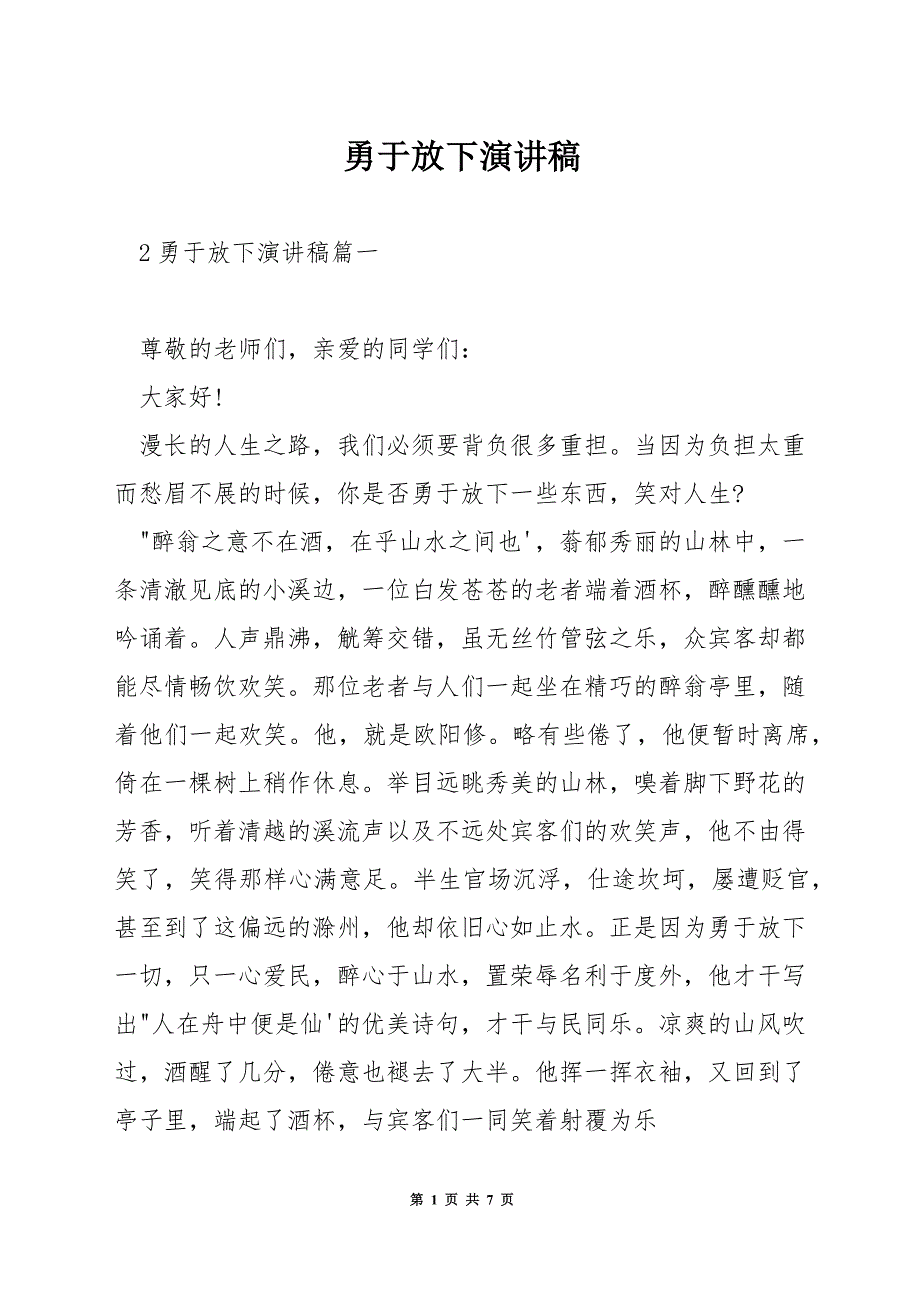 勇于放下演讲稿
2 勇于放下演讲稿篇一
尊敬的老师们，亲爱的同学们：
大家好!
漫长的人生之路，我们必须要背负很多重担。当因为负担太重
而愁眉不展的时候，你是否勇于放下一些东西，笑对人生?
"醉翁之意不在酒，在乎山水之间也'，蓊郁秀丽的山林中，一
条清澈见底的小溪边，一位白发苍苍的老者端着酒杯，醉醺醺地
吟诵着。人声鼎沸，觥筹交错，虽无丝竹管弦之乐，众宾客却都
能尽情畅饮欢笑。那位老者与人们一起坐在精巧的醉翁亭里，随
着他们一起欢笑。他，就是欧阳修。略有些倦了，他便暂时离席，
倚在一棵树上稍作休息。举目远眺秀美的山林，嗅着脚下野花的
芳香，听着清越的溪流声以及不远处宾客们的欢笑声，他不由得
笑了，笑得那样心满意足。半生官场沉浮，仕途坎坷，屡遭贬官，
甚至到了这偏远的滁州，他却依旧心如止水。正是因为勇于放下
一切，只一心爱民，醉心于山水，置荣辱名利于度外，他才干写
出"人在舟中便是仙'的优美诗句，才干与民同乐。凉爽的山风吹
过，酒醒了几分，倦意也褪去了大半。他挥一挥衣袖，又回到了
亭子里，端起了酒杯，与宾客们一同笑着射覆为乐
第 1 页 共 7 页